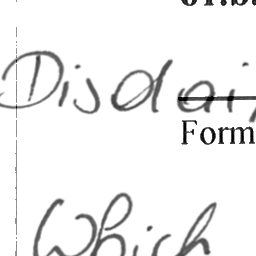 Disdai
Form
Which